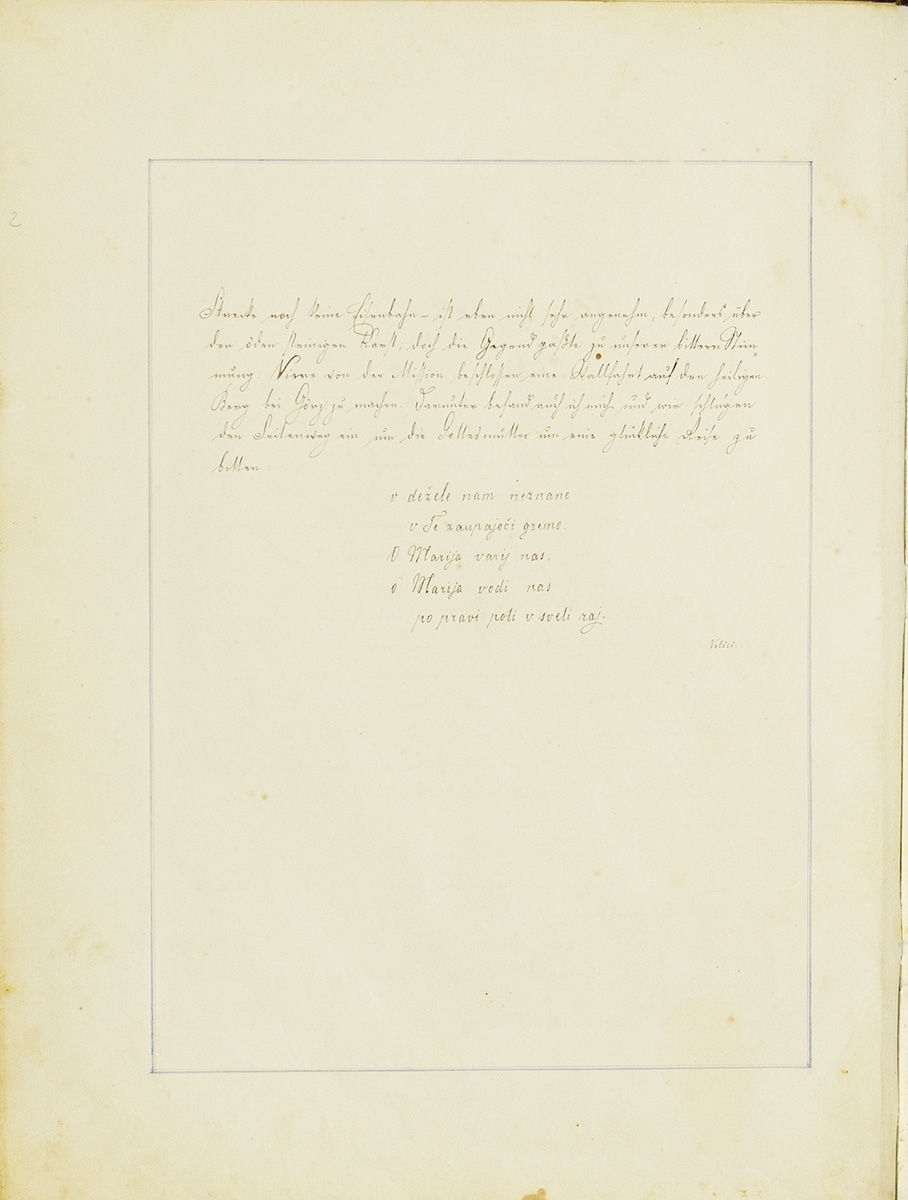 2
Strecke noch keine Eisenbahn – ist eben nicht sehr angenehm, besonders über
den öden steinigen Karst; doch die Gegend paßte zu unserer bittern Stim„
mung. Vierre von der Mission beschlossen eine Wallfahrt auf den heiligen
Berg bei Görz zu machen. Darunter befand auch ich mich und wir schlugen
den Seitenweg ein um die Gottesmutter um eine glückliche Reise zu
bitten:
v dežele nam neznane
v Te zaupajoči gremo.
O Marija varij nas.
o Marija vodi nas
po pravi poti v sveti raj.